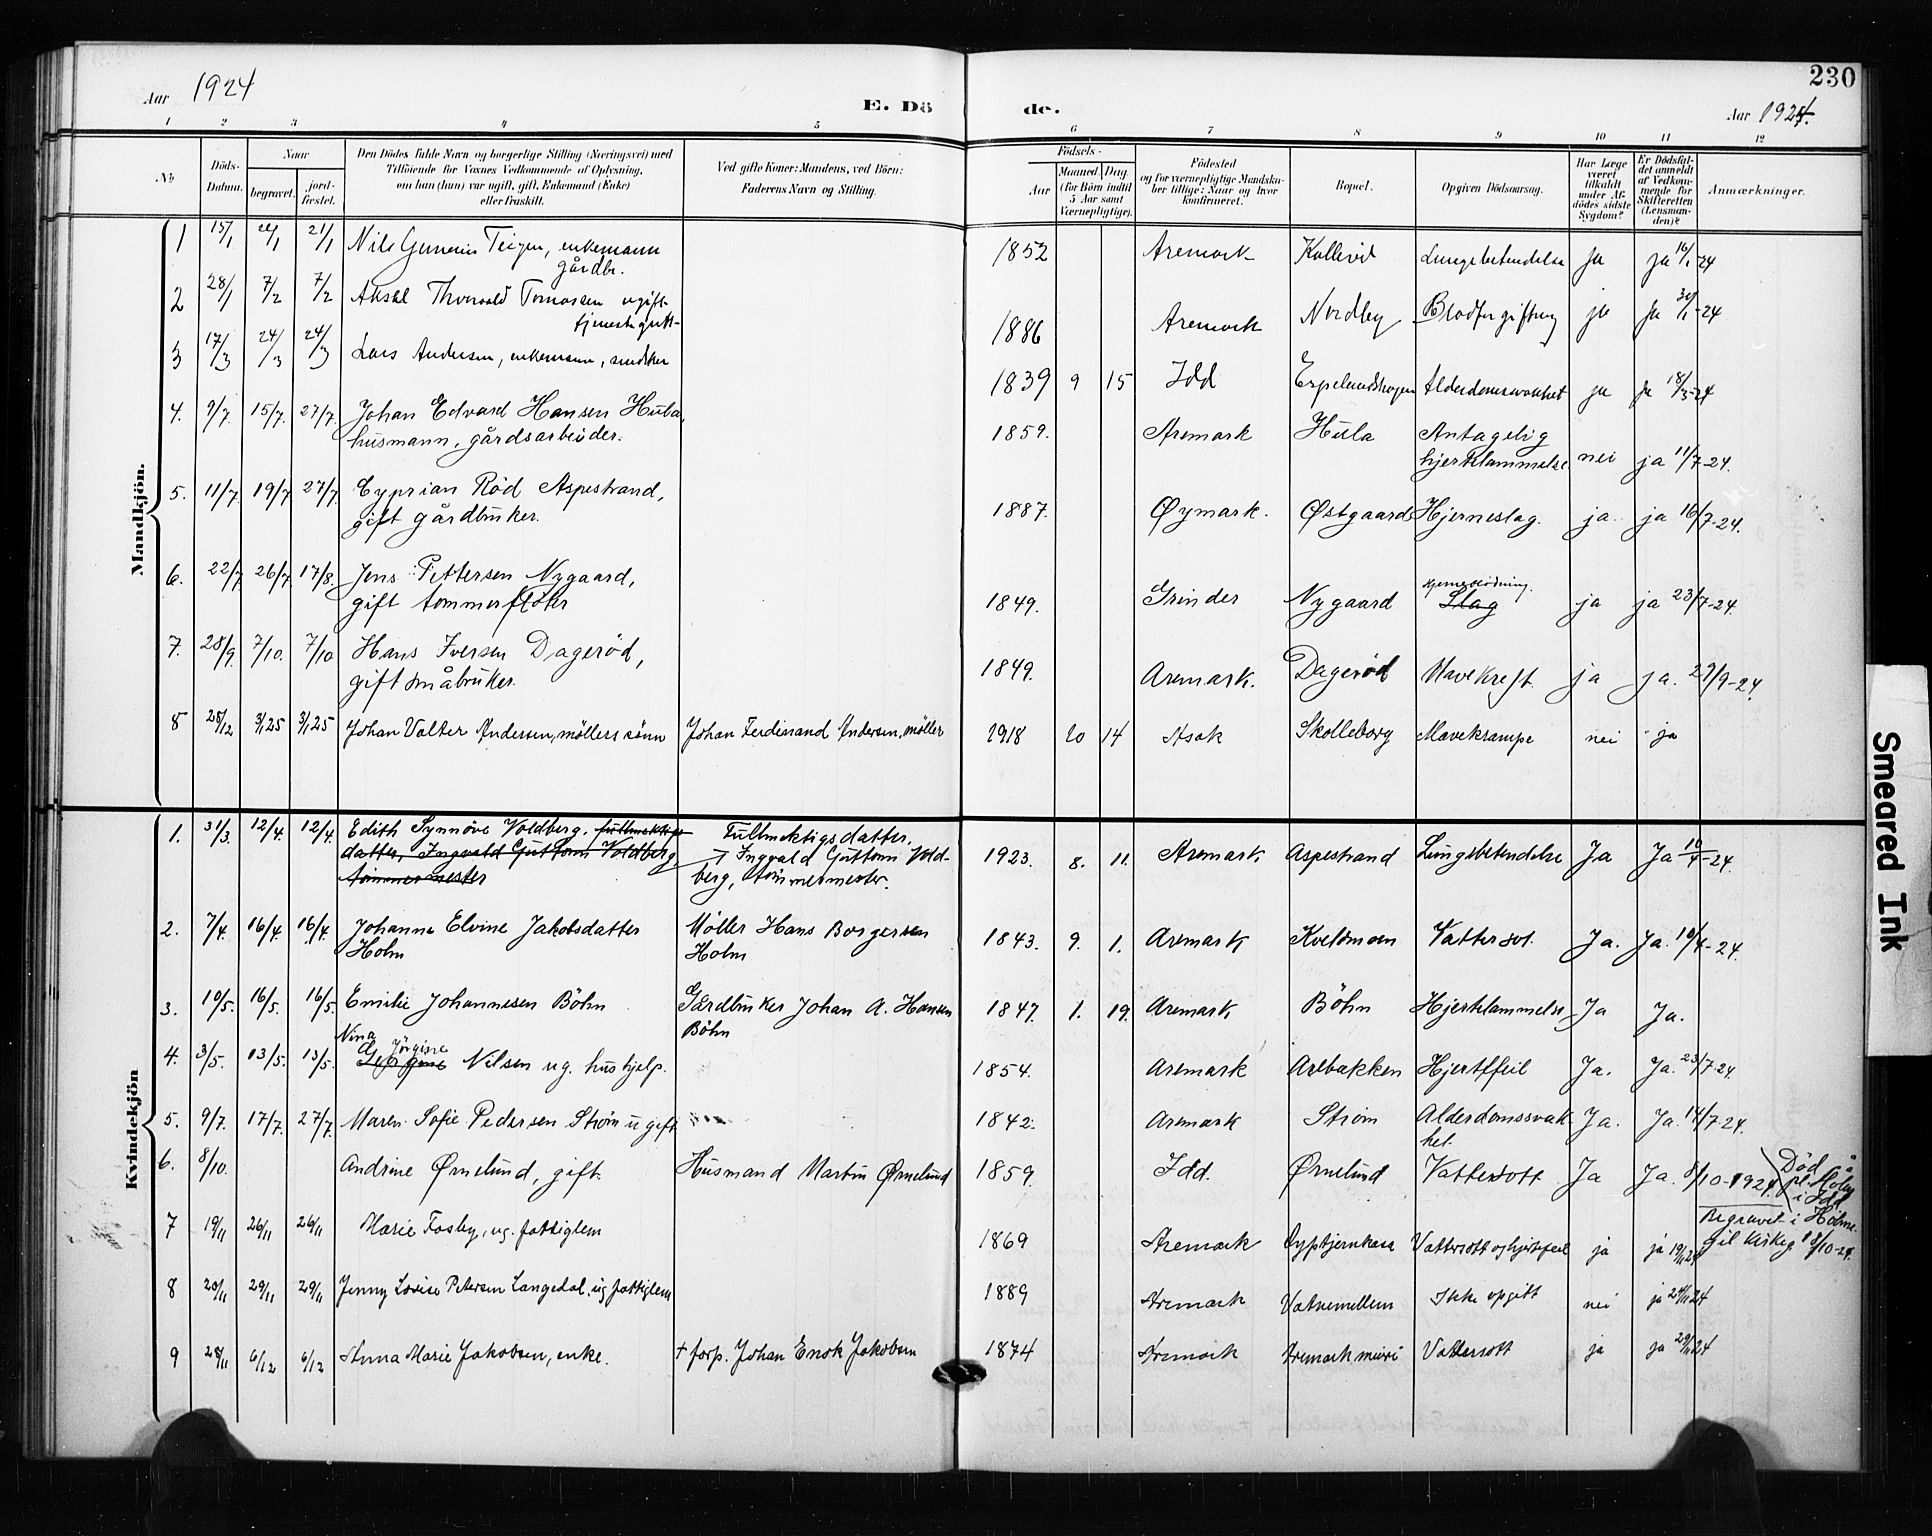 230
Aar 1924
E. Dö
de.
Aar 1924.
1 2 3 4 5 6 7 8 9 10 11 12
No
Döds-Datum.
Naar
begravet.
jord-fæstet.
Den Dödes fulde Navn og borgerlige Stilling (Næringsvei) med
Tilföiende for Voxnes Vedkommende af Oplysning,
om han (hun) var ugift, gift, Enkemand (Enke)
eller fraskilt.
Ved gifte Koner: Mandens, ved Börn:
Faderens Navn og Stilling.
Födsels-
Aar
Maaned. Dag.
(for Börn indtil
5 Aar samt
Værnepligtige).
Födested
og for værnepligtige Mandska-
ber tillige: Naar og hvor
konfirmeret.
Bopæl.
Opgiven Dödsaarsag.
Har Læge
været
tilkaldt
under Af-
dödes sidste
Sygdom?
Er Dödsfal-
det anmeldt
af Vedkom-
mende for
Skifteretten
(Lensman-
den)?
Anmærkninger.
Mandkjön.
1 15/1 21/1 Nils Teigen, enkemann gårdbr. 1852 Aremark Lungebetendelse ja ja 16/1-24
2 28/1 7/2 7/2 Aksel Thorvald Tomassen ugift tjenestegutt 1886 Aremark Nordby Blodforgiftning ja ja 30/1-24
3 17/3 24/3 24/3 Lars Andersen, enkemann, snedker 1839 9 15 Idd Alderdomssvakhet ja ja 18/3-24
4. 9/7 15/7. 27/7. Johan Edvard Hansen Hula, husmann, gårdsarbeider. 1859. Aremark Hula Antagelig hjertelammelse nei ja 11/7-24.
5. 11/7 19/7 27/7 Cyprian Röd Aspestrand, gift gårdbruker. 1887. Øymark. Østgaard Hjerneslag. ja. ja 16/7-24.
6. 22/7 26/7 17/8. Jens Pettersen Nygaard, gift tømmerfløter 1849. Grinder Nygaard Hjerneblødning. Slag ja ja 23/7-24.
7. 28/9. 7/10. 7/10 Hans Iversen Dageröd, gift småbruker. 1849. Aremark. Dageröd Mavekreft. ja ja. 29/9-24.
8 28/12 3/1 25 3/1 25 Johan Valter Andersen, möllers sönn Johan Ferdinand Andersen, möller 1918 10 14 Asak Skolleborg Mavekrampe nei ja
Kvindekjön
1. 31/3 12/4. 12/4. Edith Synnöve Voldberg, fullmektigs datter, Ingvald Guttorm Voldberg, tömmermester Fullmektigsdatter. Ingvald Guttorm Voldberg, tömmermester. 1923. 8. 11. Aremark Aspestrand Lungebetendelse Ja Ja 10/4-24.
2. 7/4. 16/4. 16/4. Johanne Elvine Jakobsdatter Holm Möller Hans Borgersen Holm 1843. 9. 1. Aremark Kveldmoen Vattersot. Ja. Ja. 10/4-24.
3. 10/5. 16/5. 16/5. Emilie Johannesen Böhn Gårdbruker Johan A. Hansen Böhn 1847. 1. 19. Aremark Böhn Hjertelammelse Ja Ja.
4. 3/5. 13/5. 13/5. Nina Jörgine Nilsen ug. hushjelp. 1854. Aremark Arebakken Hjertefeil Ja. Ja. 23/7-24.
5. 9/7. 17/7. 27/7. Maren Sofie Pedersen Strøm ugift 1842. Aremark Strøm Alderdomssvakhet. Ja. Ja. 14/7-24.
6. 8/10. Andrine Ørnelund, gift. Husmand Martin Ørnelund 1859. Idd. Ørnelund Vattersott Ja Ja. 8/10-1924. Död på Holm i Idd. Begravet i Holmegil kirkeg 18/10-24.
7 19/11 26/11 26/11 Marie Fosby, ug. fattiglem 1869 Aremark Vattersott og hjertefeil ja ja 19/11 24
8 20/11 29/11 29/11 Jenny Lovise Petersen Langedal, ug fattiglem 1889 Aremark Vatnemellem Ikke opgitt nei ja 24/11 24
9 28/11 6/12 6/12 Anna Marie Jakobsen, enke. + forp. Johan Enok Jakobsen 1874 Aremark Vattersott ja ja 29/11 24
Smeared Ink